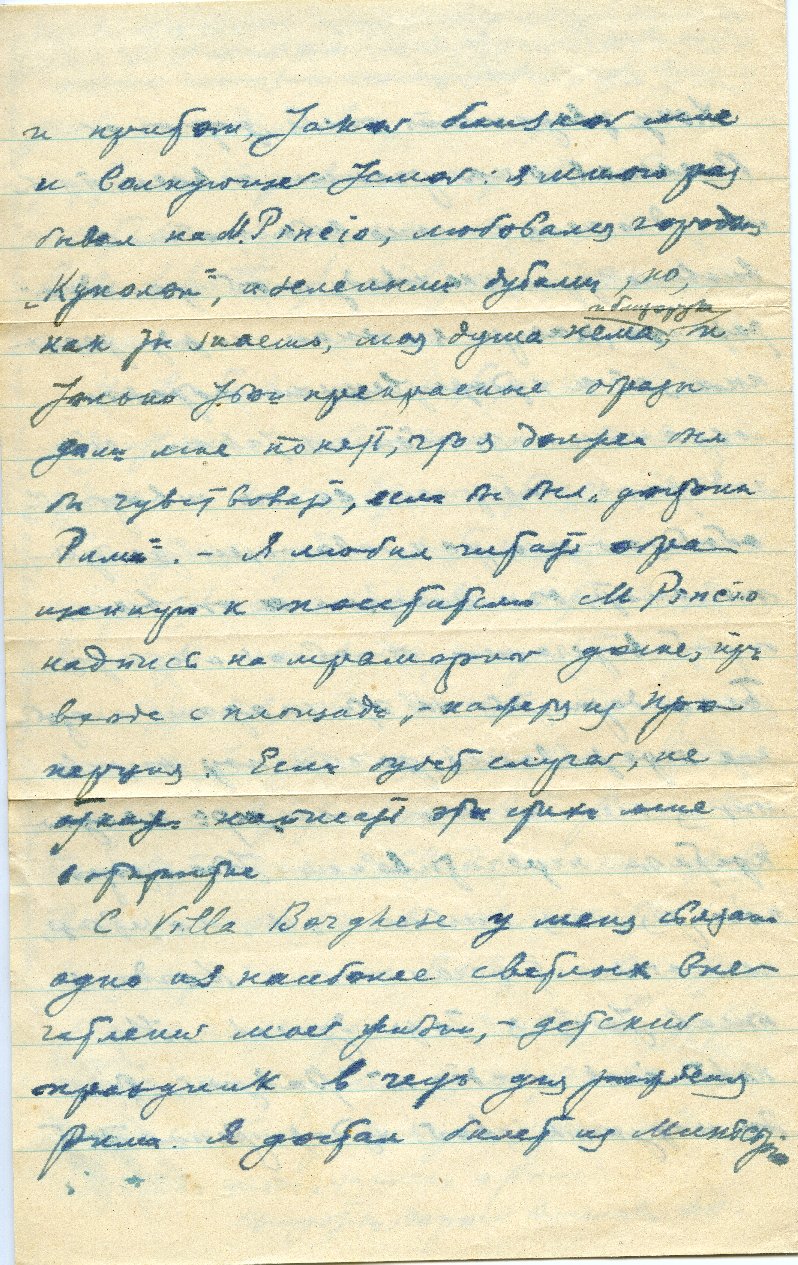 и простой, такой близкой мне
и волнующей темой: я много раз
бывал на M. Pincio, любовался городом,
„Куполом“, и зелеными дубами, но,
как ты знаешь, моя душа нема, и
только твои прекрасные образы
дали мне понять, что я должен был
бы чувствовать, если бы был „достоин
Рима“. – Я любил читать обра-
щенную к посетителю M Pincio
надпись на мраморной доске, при
входе с площади, – из Про-
перция. Если будет случай, не
откажи написать эти строки мне
в открытке
С Villa Borghese у меня связано
одно из наиболее светлых впе-
чатлений моей жизни, – детский
праздник в честь дня рождения
Рима. Я достал билет из Министер-